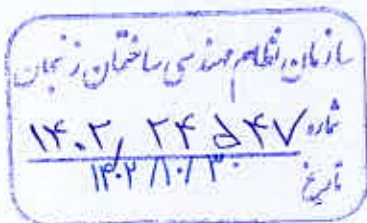 سازمان نظام مهندسی ساختمان زنجان
شماره ۱۴۰۲/ ۲۴۵۴۷
تاریخ ۱۴۰۲/۱۰/۳۰